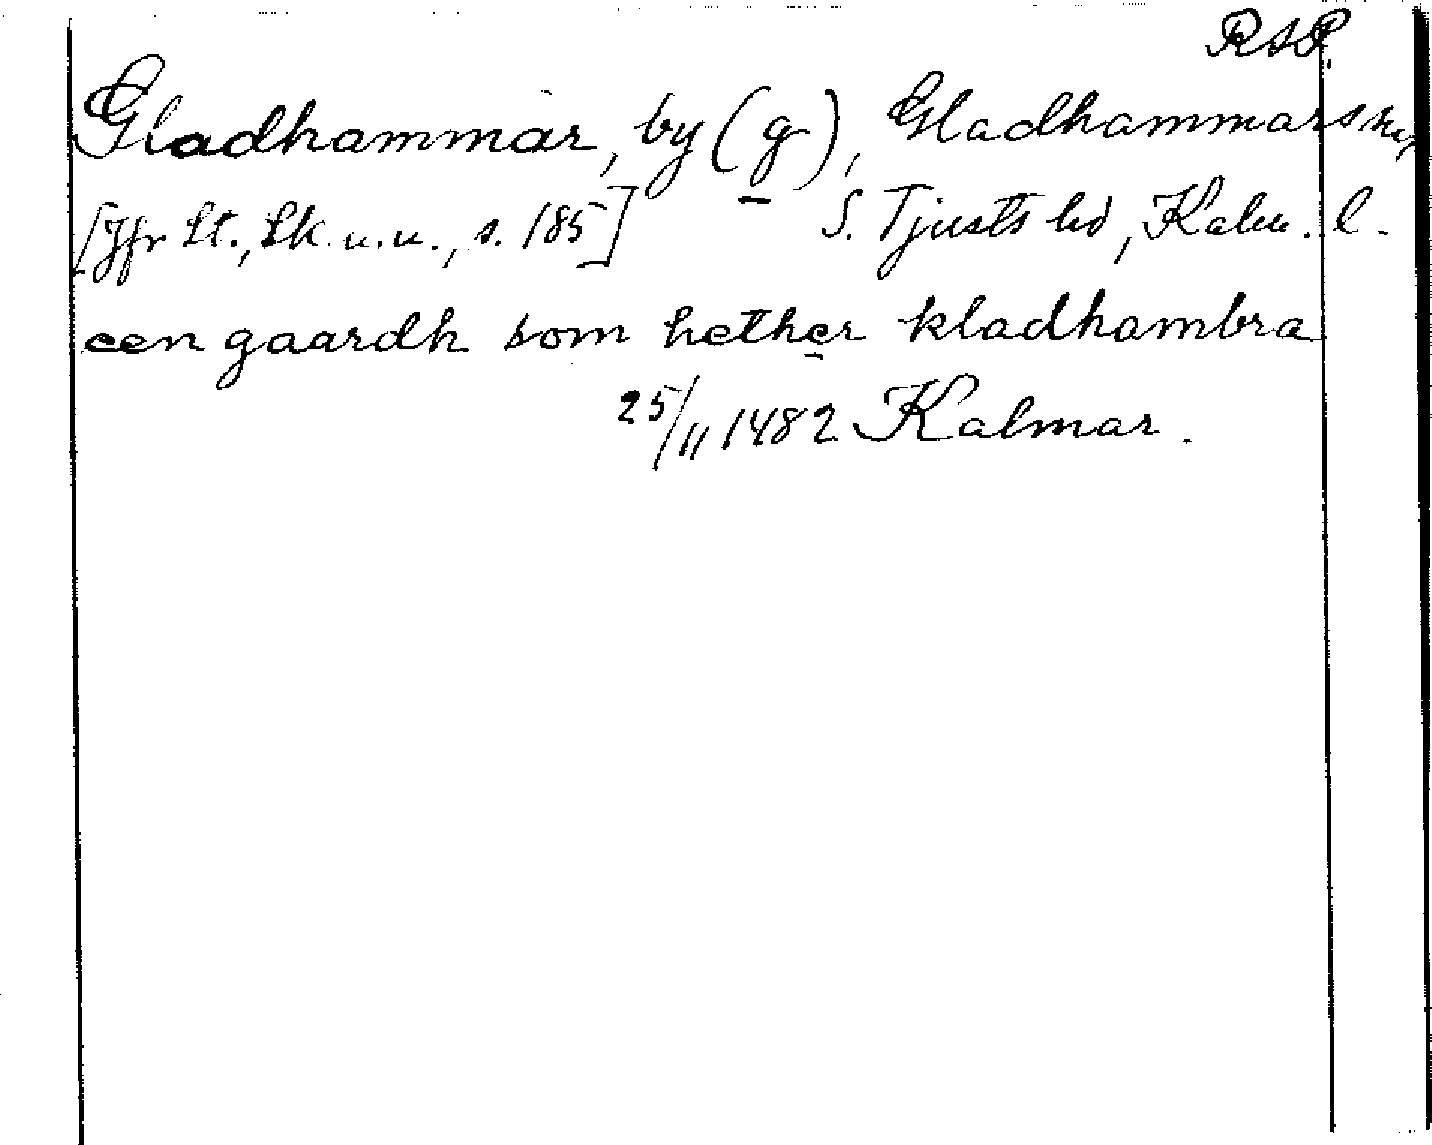 RAP.
Gladhammar, by (g), Gladhammars sn,
[Jfr Lt., Lk. u. u., s. 185] S. Tjusts hd, Kalm. l.
een gaardh som hether kladhambra
25/11 1482 Kalmar.